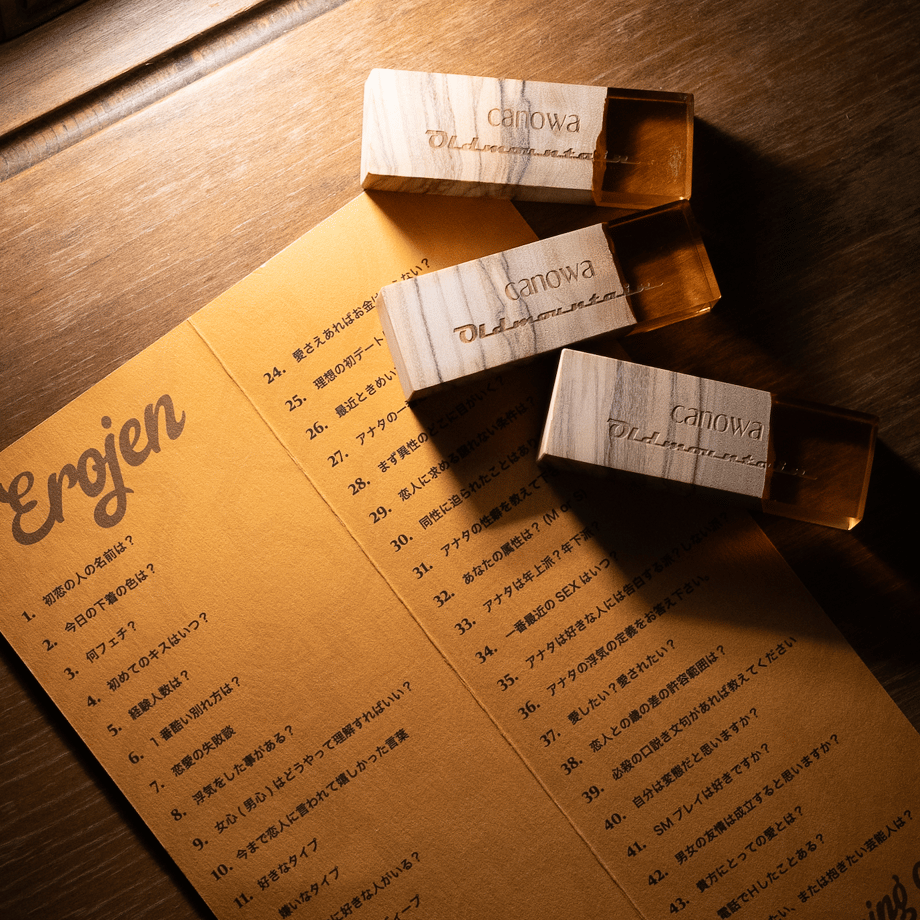 canowa
Oldmountain
canowa
Oldmountain
canowa
Oldmountain
Erojen
1. 初恋の人の名前は?
2. 今日の下着の色は?
3. 何フェチ?
4. 初めてのキスはいつ?
5. 経験人数は?
6. 1番酷い別れ方は?
7. 恋愛の失敗談
8. 浮気をした事がある?
9. 女心(男心)はどうやって理解すればいい?
10. 今まで恋人に言われて嬉しかった言葉
11. 好きなタイプ
嫌いなタイプ
に好きな人がいる?
24. 愛さえあればお金は
ない?
25. 理想の初デート
26. 最近ときめい
27. アナタの一
28. まず異性のどこに目がいく?
29. 恋人に求める譲れない条件は?
30. 同性に迫られたことはあ
31. アナタの性癖を教えて下
32. あなたの属性は? (M or S)
33. アナタは年上派?年下派?
34. 一番最近の SEX はいつ?
35. アナタは好きな人には告白する派?しない派?
36. アナタの浮気の定義をお答え下さい。
37. 愛したい?愛されたい?
38. 恋人との歳の差の許容範囲は?
39. 必殺の口説き文句があれば教えてください
40. 自分は変態だと思いますか?
41. SM プレイは好きですか?
42. 男女の友情は成立すると思いますか?
43. 貴方にとっての愛とは?
電話でHしたことある?
たい、または抱きたい芸能人は?